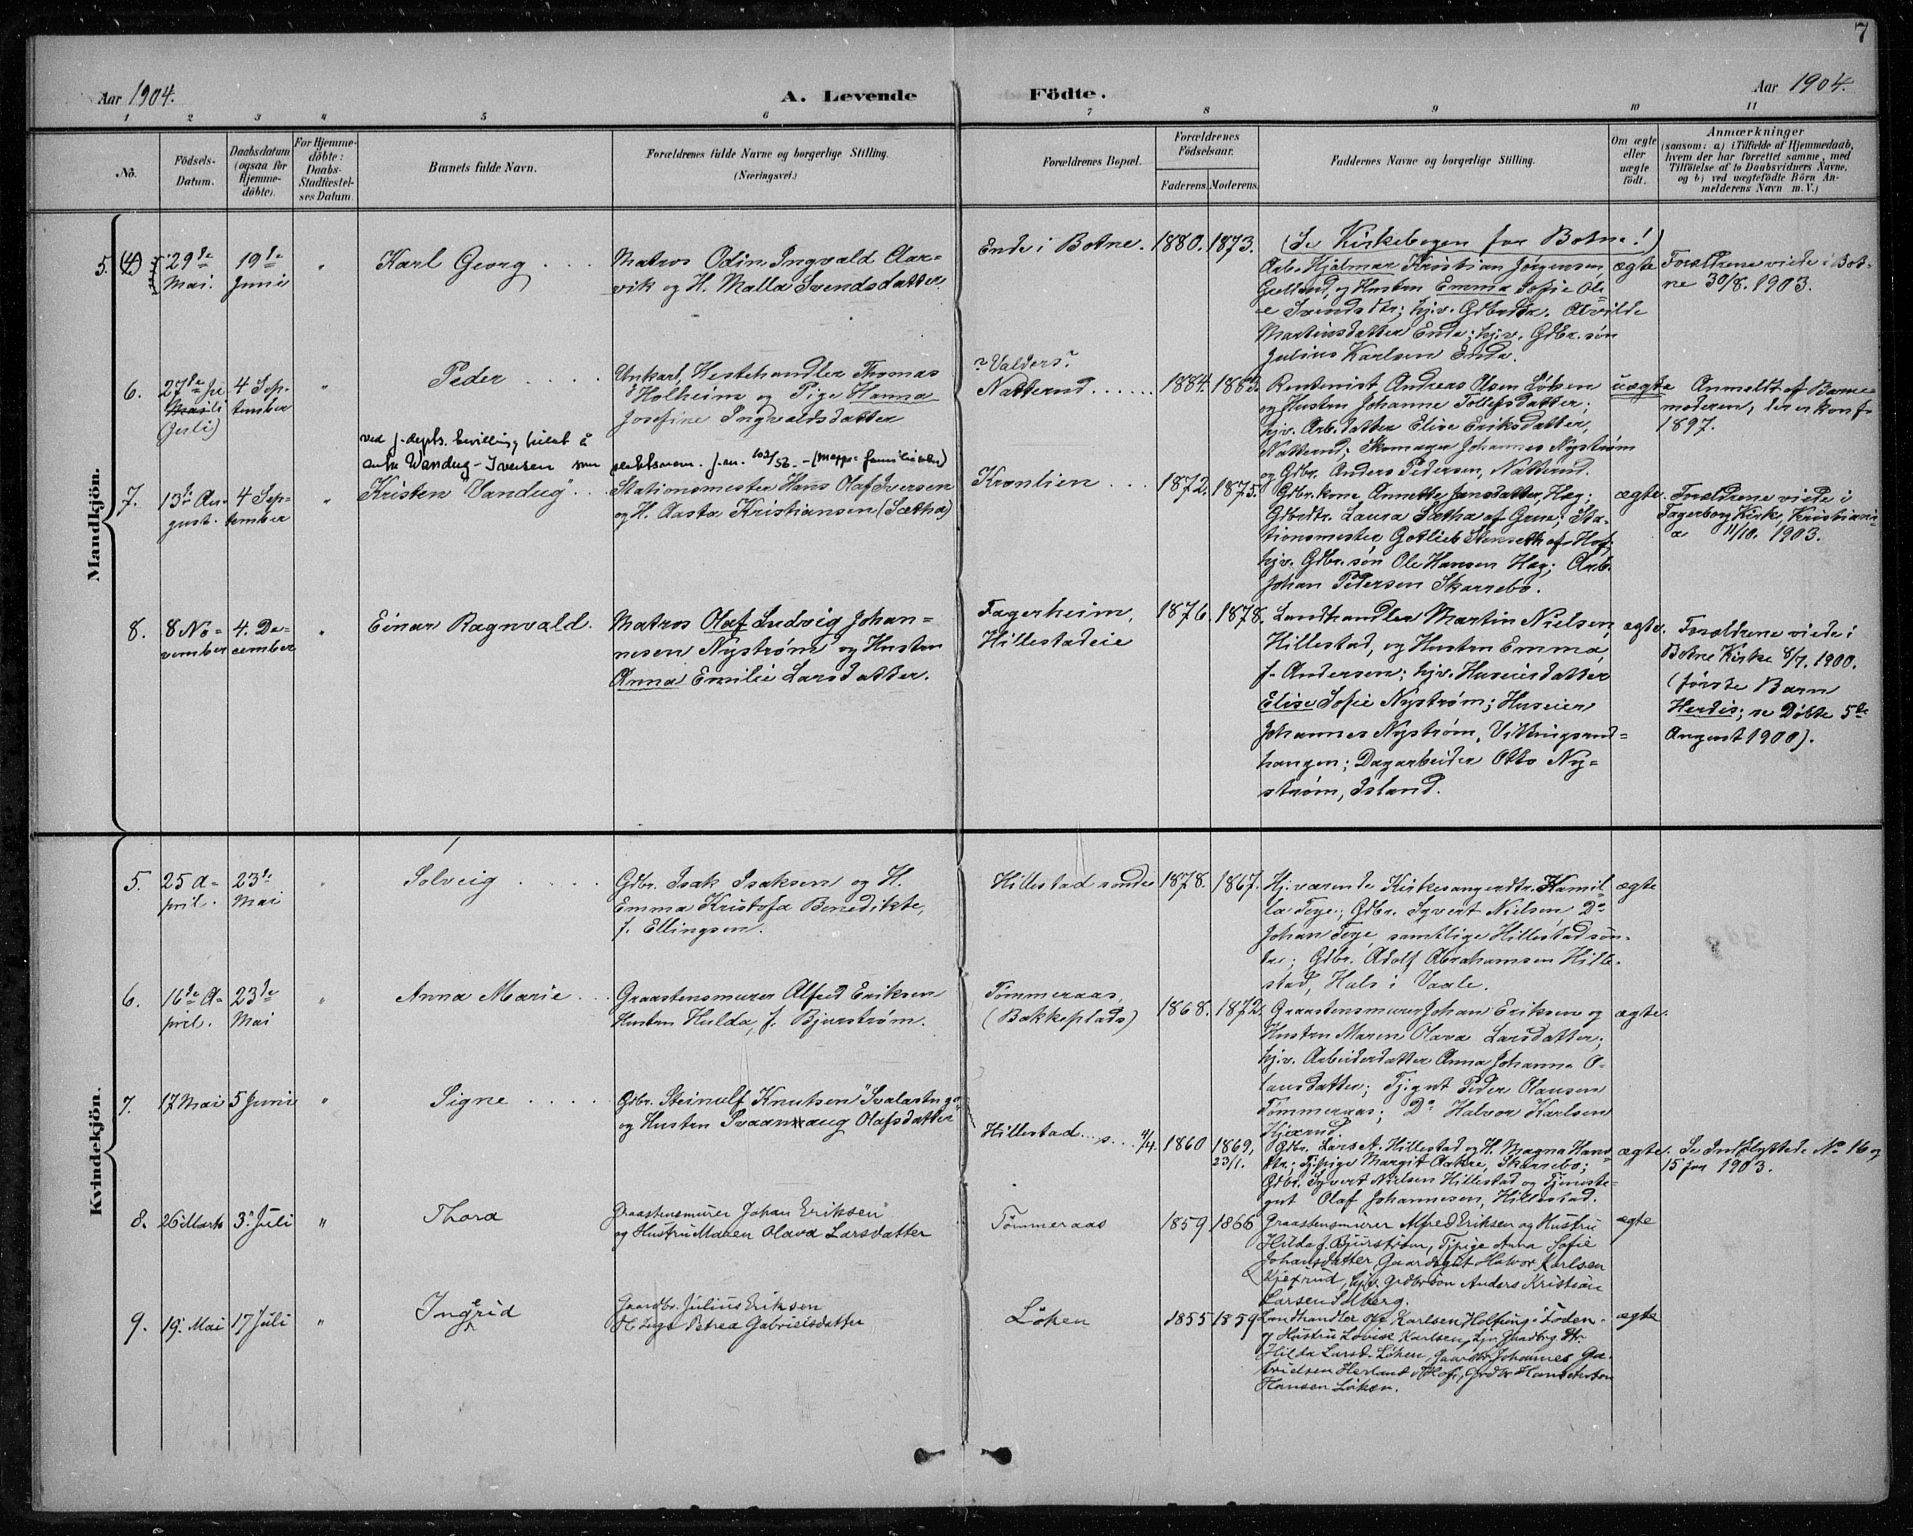 7
Aar 1904.
A. Levende Födte.
Aar 1904.
1 2 3 4 5 6 7 8 9 10 11
No.
Födsels-
Datum.
Daabsdatum
(ogsaa för
Hjemme-
döbte).
For Hjemme-
döbte:
Daabs-
Stadfæstel-
ses Datum.
Barnets fulde Navn.
Forældrenes fulde Navne og borgerlige Stilling.
(Næringsvei.)
Forældrenes Bopæl.
Forældrenes
Födselsaar.
Faderens. Moderens.
Faddernes Navne og borgerlige Stilling.
Om ægte
eller
uægte
födt.
Anmærkninger
(saasom: a) i Tilfælde af Hjemmedaab,
hvem der har forrettet samme, med
Tilföielse af to Daabsvidners Navne,
og b) ved uægtefödte Börn An-
melderens Navn m. V.)
Mandkjön.
5. (4)
29de
Mai.
19de
Juni
"
Karl Georg
Matros Odin Ingvald Clar-
vik og H. Malla Svendsdatter.
Ende i Botne.
1880. 1873.
(Se Kirkebogen for Botne!)
Arb. Hjalmar Kristian Jørgensen,
Gulland, og Husten Emma Sofie Ol-
e Svendsdtr; hjv. Gdbrdtr. Alvilde
Martinsdatter Ende; hjv. Gdbr. søn
Julius Karlsen Ende.
ægte
Forældrene viede i Bot-
ne 30/8. 1903.
6.
27de Ju
li
(Juli)
4 Sep-
tember
"
Peder
Unkarl, Hestehandler Thomas
Holheim og Pige Hanna
Josefine Ingvaldsdatter
? Valders?
Natterud
1884. 1883.
Rentenist Andreas Olsen Løken
og Husten Johanne Tollefsdatter;
hjv. Arb. datter Elise Eriksdatter,
Natterud; Skomager Johannes Nystrøm
og Gdbr. Anders Pedersen, Natterud.
uægte
Anmeldt af Barne-
moderen, der er konf.
1897.
ved j.depts. bevilling tillat å
anta Vandug-Iversen som
slektsnavn. j.nr. 102/52. - (mappe familienavn)
7.
13de Au-
gust.
4 Sep-
tember
"
Kristen "Vandug"
Stationsmester Hans Olaf Iversen
og H. Aasta Kristiansen (Sætha)
Kronlien
1872. 1875.
Gdbr. kone Annette Jensdatter, Hag;
Gdbrdtr. Laura Sætha af Grue; Sta-
tionsmester Gotlieb Stenseth af Hof;
hjv. Gdbr. søn Ole Hansen Hag; Arb.
Johan Pedersen Skarrebo.
ægte.
Forældrene viede i
Fagerborg Kirk, Kristiani-
a 11/10. 1903.
8.
8 No-
vember
4. De-
cember
"
Einar Ragnvald.
Matros Olaf Ludvig Johan-
nesen Nystrøm og Husten
Anna Emilie Larsdatter.
Fagerheim,
Hillestadeie
1876. 1878.
Landhandler Martin Nielsen,
Hillestad, og Husten Emma,
f. Andersen; hjv. Huseiersdatter
Elise Sofie Nystrøm; Huseier
Johannes Nystrøm, Vikingsrud-
hangen; Dagarbeider Otto Ny-
strøm, Island.
ægte.
Forældrene viede i
Botne Kirke 8/7. 1900.
(første Barn
Herdis; se Døbte 5te
August 1900).
Kvindekjön.
5.
25 A-
pril.
23de
Mai
"
Solveig
Gdbr. Isak Isaksen og H.
Emma Kristofa Benedikte,
f. Ellingsen.
Hillestad søndre
1878. 1867.
Hjv.værende Kirkesangerdtr. Kamil-
la Foye; Gdbr. Syvert Nielsen, Do
Johan Foye, samtlige Hillestad søn-
dre; Gdbr. Adolf Abrahamsen Hille-
stad, Hals i Vaale.
ægte
6.
16de A-
pril.
23de
Mai
"
Anna Marie
Graastensmurer Alfred Eriksen
Husten Hulda, f. Bjurstrøm.
Tømmeraas,
(Bakkeplads)
1868. 1872.
Graastensmurer Johan Eriksen og
Husten Maren Olava Larsdatter;
hjv. Arbeiderdatter Anna Johanna O-
lausdatter; Tjgut Peder Olausen
Tømmeraas; Do Halvor Karlsen
Kjærud.
ægte.
7.
17 Mai
5 Juni
"
Signe
Gdbr. Steinulf Knutsen "Svalastoga"
og Husten Svaanaug Olafsdatter
Hillestad s. 4/4.
1860 1869,
23/1.
Gdbr. Lars A. Hillestad og H. Magna Hans-
dtr.; Tjpige Margit Aakre, Skarrebo;
Gdbr. Syvert Nielsen Hillestad og Tjeneste-
gut Olaf Johannesen, Hillestad.
ægte.
Se Indflyttede No 16 og
15 for 1903.
8.
26 Marts
3. Juli
"
Thora
Graastensmurer Johan Eriksen
og Hustru Maren Olava Larsdatter
Tømmeraas
1859 1866
Graastensmurer Alfred Eriksen og Hustru
Hilda f. Bjurstrøm, Tjpige Anna Sofie
Johansdatter, Gaardsgut Halvor Karlsen
Kjærud, hjv. Grdbrsøn Anders Kristian
Larsen Solberg.
ægte
9.
19. Mai
17 Juli
"
Ingerid
Gaardbr. Julius Eriksen
H. Inga Petrea Gabrielsdatter
Løken
1855 1859
Landhandler Karlsen i Foden-
og Hustru Lovise Karlsen,
Hilda Larsd. Løken, Gaardbr Johannes Ga-
brielsen Herland i Hof, Grdbr Hans Anton
Hansen Løken.
ægte